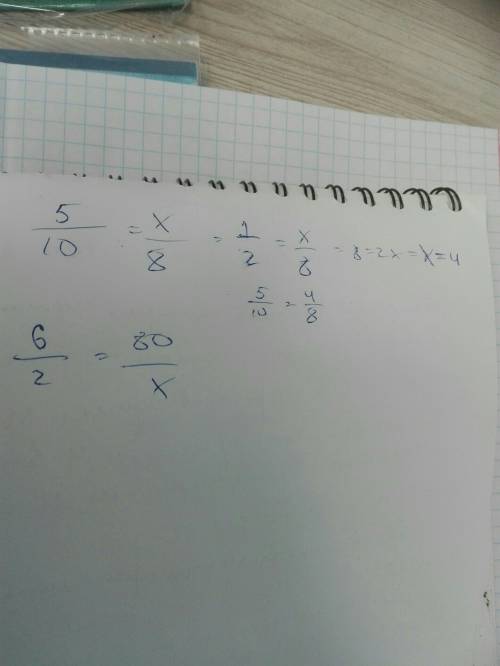 5/10 = x/8 = 1/2 = x/8 = 8=2x = x=4
5/10 = 4/8
6/2 = 80/x